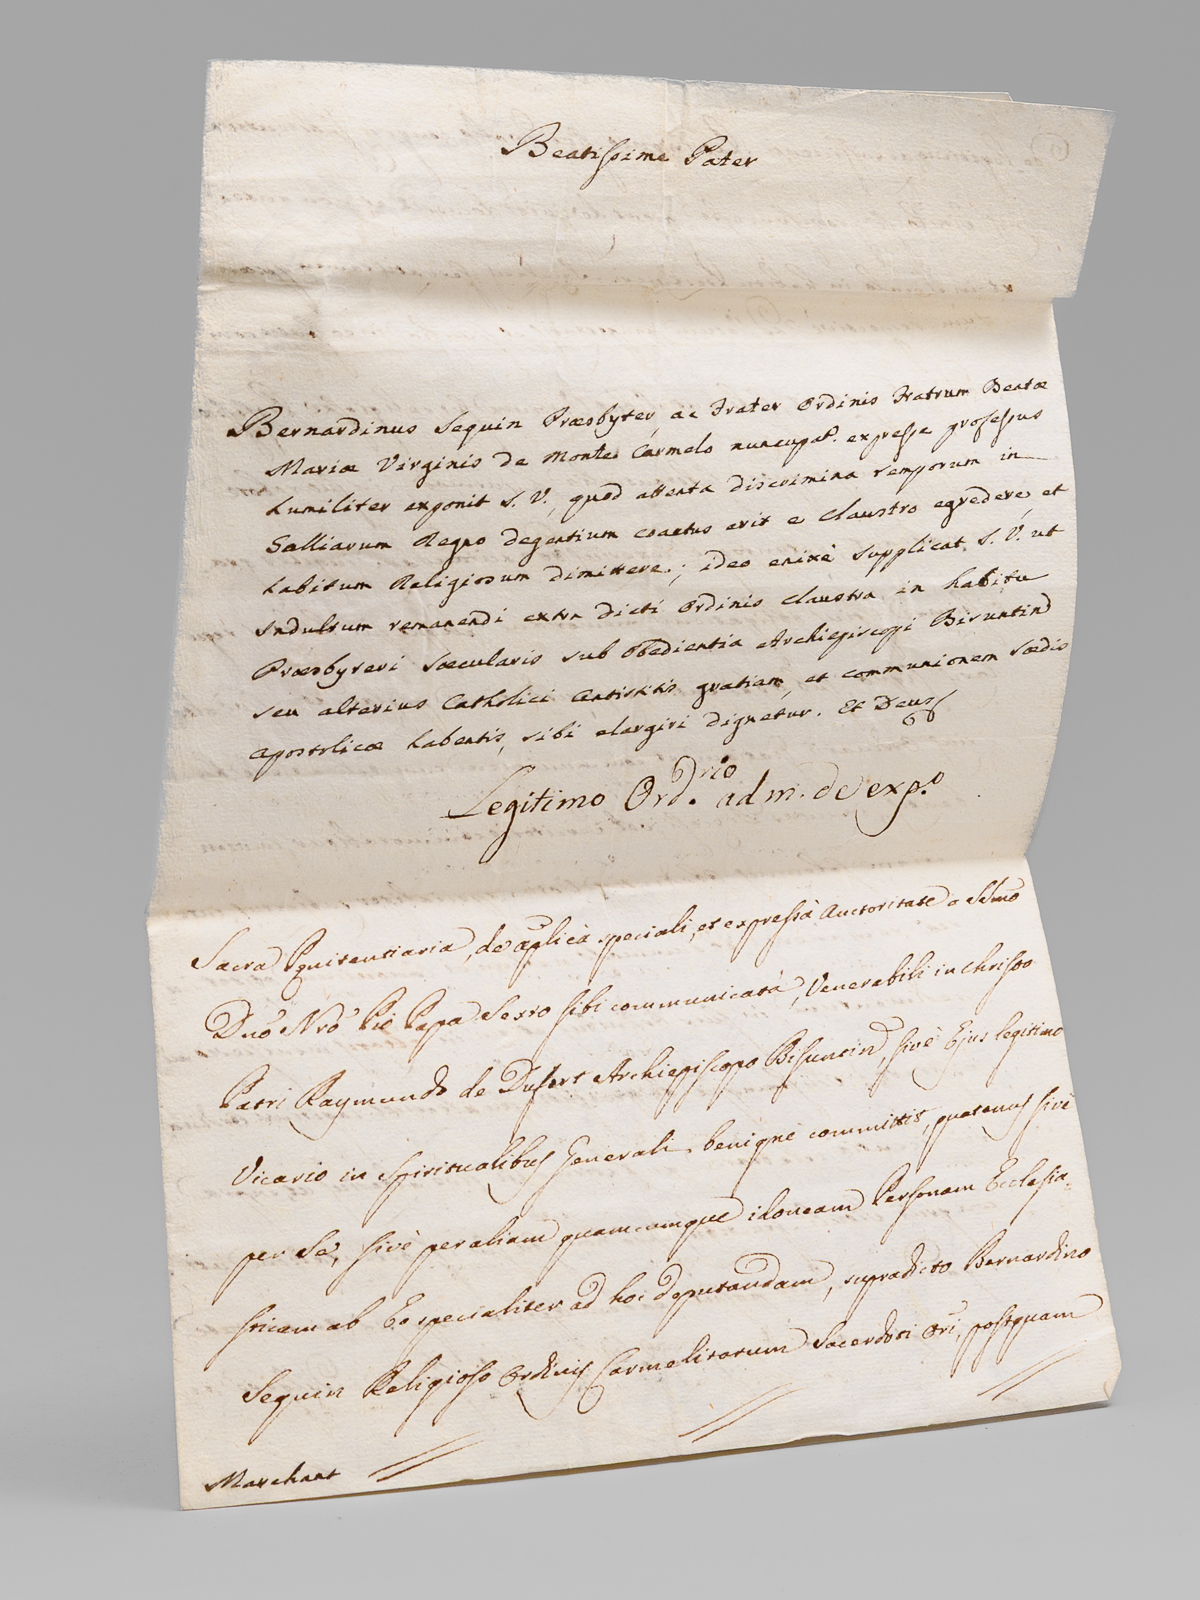 Beatissime Pater
Bernardinus Seguin Præsbyter, ac Frater Ordinis Fratrum Beatæ
Mariæ Virginis de Monte Carmelo nuncupat. expresse professus
humiliter exponit S. V., quod attenta discrimina temporum in
Galliarum Regno degentium coactus erit e claustro egredere, et
habitum Religiosum dimittere; ideo enixè supplicat S. V. ut
Indultum remanendi extra dicti Ordinis claustra in habitu
Præsbyteri sæcularis sub obedientia Archiepiscopi Bisuntin
seu alterius Catholici Antistitis gratiam, et communionem sædis
Apostolicæ habentis, sibi elargiri dignetur. Et Deus
Legitimo Ord.rio ad m. de exp.o
Sacra Pœnitentiaria, de aplicà speciali, et expressà Auctoritate a SSmo
Dno Nro Pio Papa Sexto sibi communicatà, Venerabili in Christo
Patri Raymundo de Dufort Archiepiscopo Bisuntin, sivè Ejus legitimo
Vicario in Spiritualibus Generali benignè committit, quatenus sivè
per Se, sivè per aliam quamcumque idoneam Personam Ecclesia-
sticam ab Eo specialiter ad hoc deputandam, supradicto Bernardino
Seguin Religioso Ordinis Carmelitarum Sacerdoti Ori, postquam
Marchant